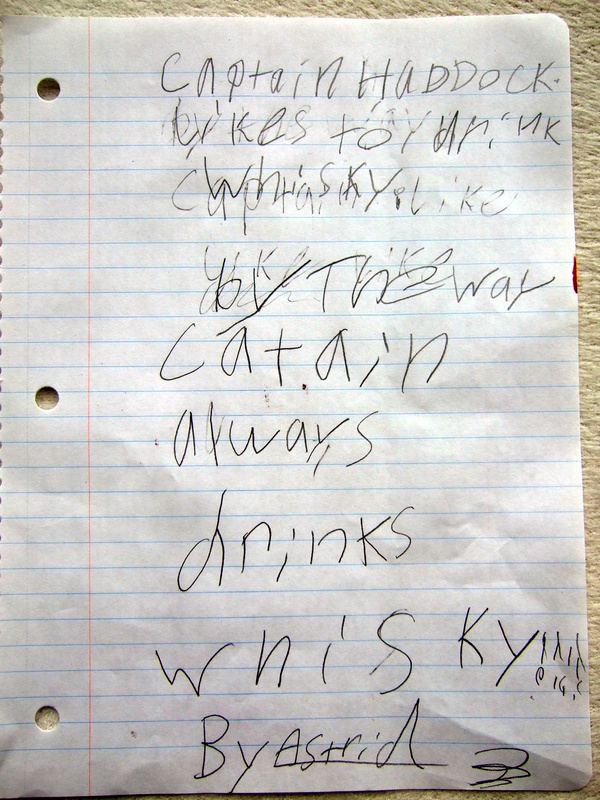 Captain HaDDOCK.
likes to drink
whisky. like
by The way
Catain
always
drinks
whisky!!!!
By Astrid